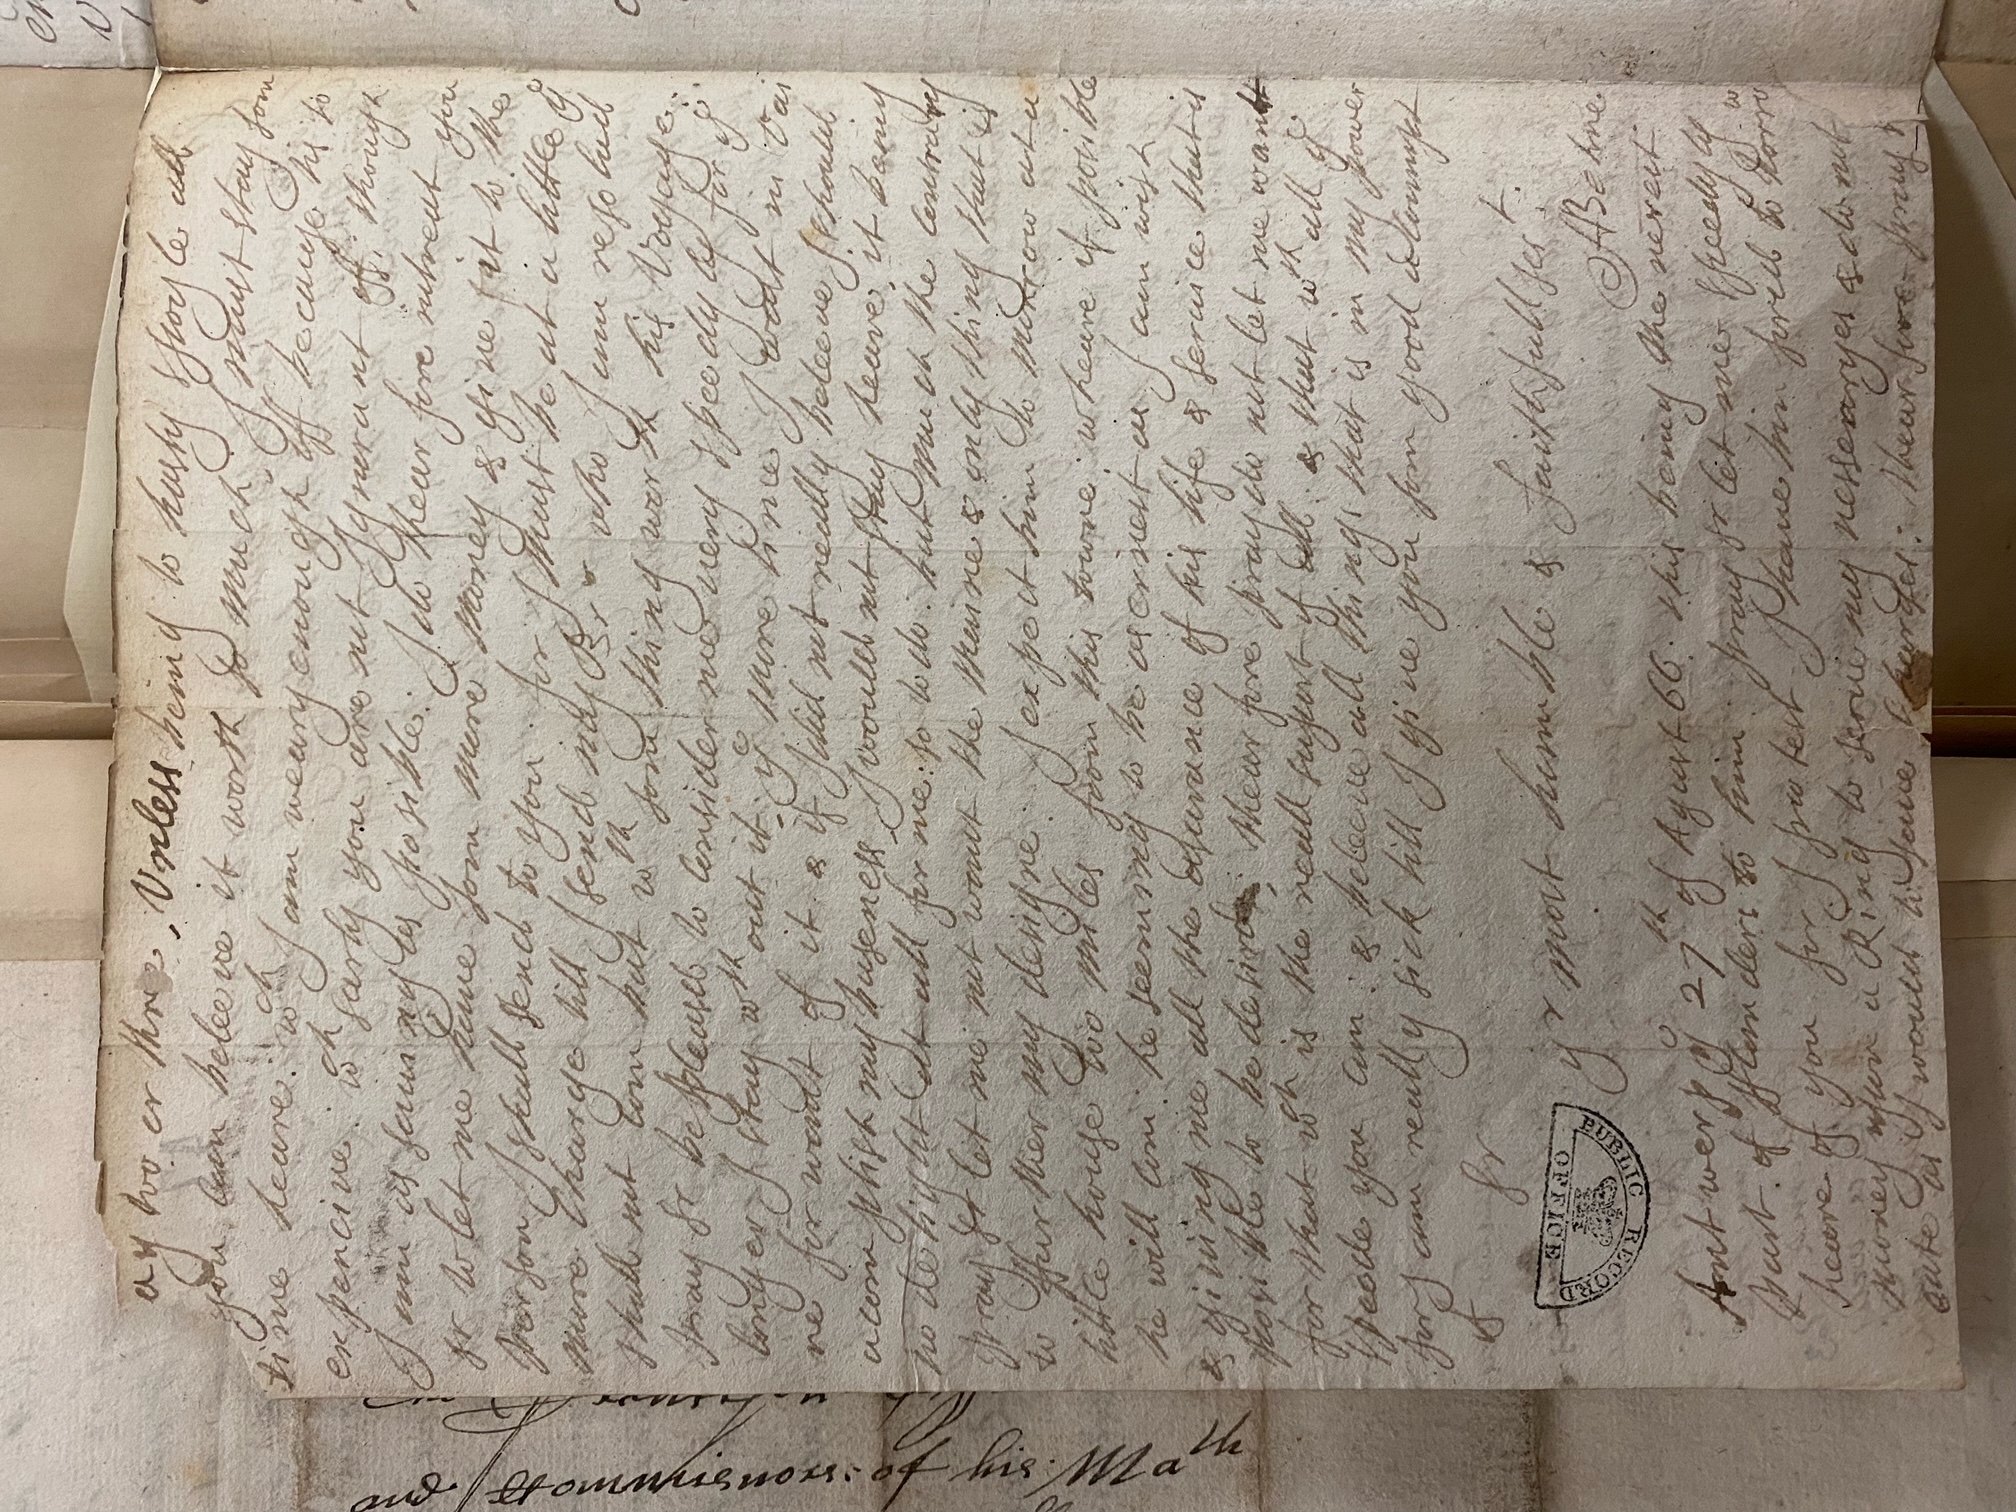 ay two or thre, Vnless being to hasty spoyle all
you can beleve it worth so much I must stay som
time heare. wch I am weary enough off because his to
expencive. wch sarly you are not Ignorant off. though
I am as saving as posible. I do thear fore intreat you
Sr to let me have som more money & give it to the
person I shall send to you. for I must be at a little
more Charge till I send my Br who I am resolved
shall not com but wth som thing worth his Voyage.
pray Sr be pleased to Consider me very speedyly for ye
longer I stay wth out it, ye more time I wast in vai
ne for want of it & if I did not really beleeve I should
acomplish my busyness I would not stay heare, it being
no delight at all for me so to do. but much the Contrary
pray Sr let me not want the meane & only thing that is
to ffurther my designe. I expect him to morrow at a
little house two miles from this towne wheare if posible
he will com. he seeming to be as ernest as I can wish
& giving me all the asurance of his life & service that is
posible to be desired, thear fore pray do not let me want
for that wch is the reall suport of all & that wth all ye
speede you can. & beleeve all things that is in my power
for I am really sick till I give you som good acount
Sr
yr most humble & faithfull ser t.
A Behne
Antwerp ye 27th of Agust 66. this being the nerest
Part of fflanders to him pray Sr let me speedyly
heare of you for I protest I have bin forced to
money upon a Ring to serve my nessesaryes & do not
eate as I would to save Charges: thear fore pray
PUBLIC RECORD
OFFICE
and Commissnors: of his Math